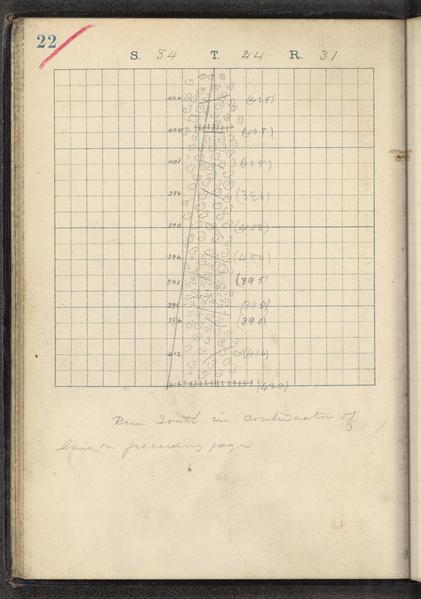 22
S. 34 T. 44 R. 31
424 (428)
404 (408)
403 (405)
386 (390)
396 (400)
396 (400)
391 (395
391 (395)
386 (390)
412 (416)
416 (420)
Run South in continuation of
line on preceding page